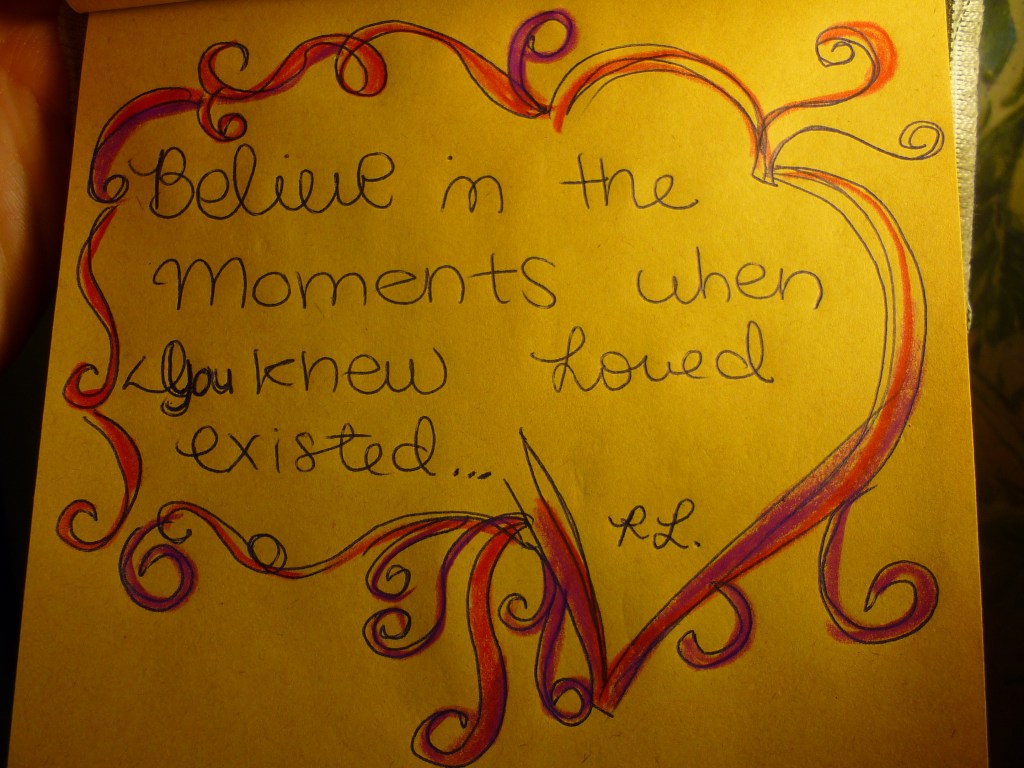 Believe in the
Moments when
<You knew Loved
existed...
R.L.